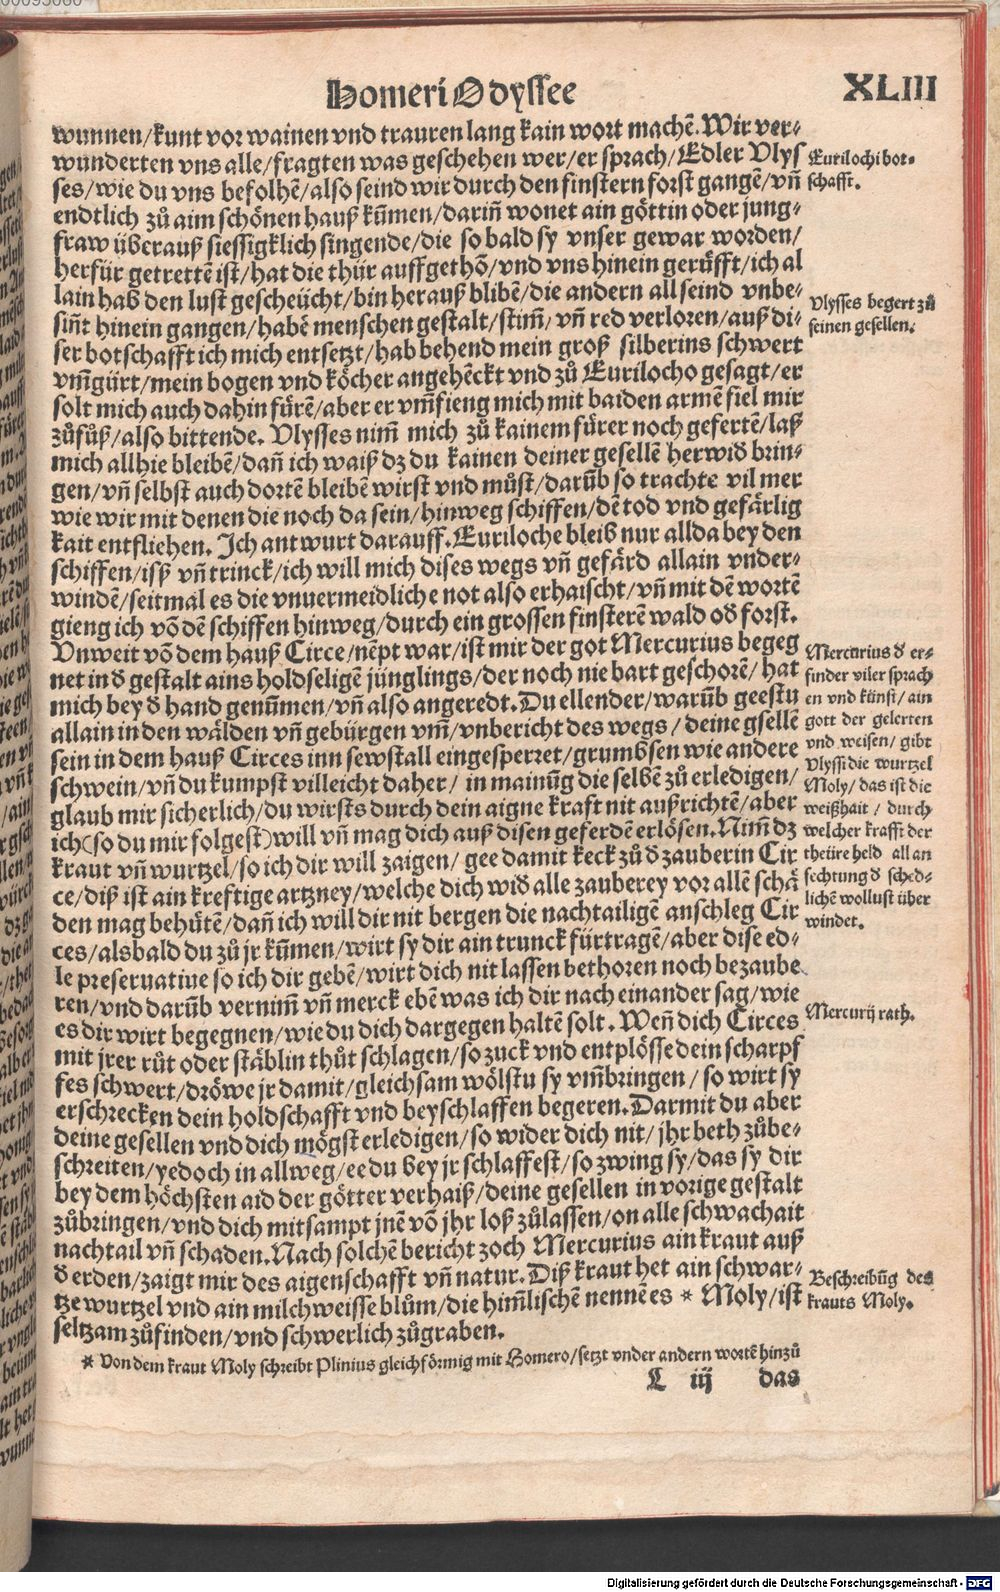 Homeri Odyssee XLIII
wunnen/kunt vor wainen vnd trauren lang kain wort machẽ. Wir ver⸗
wunderten vns alle/fragten was geschehen wer/er sprach/Edler Vlys
ses/wie du vns befolhẽ/also seind wir durch den finstern forst gangẽ/vñ
endtlich zů aim schönen hauß kum̃en/dariñ wonet ain göttin oder jung⸗
fraw überauß siessigklich singende/die so bald sy vnser gewar worden/
herfür getrettẽ ist/hat die thür auffgethõ/vnd vns hinein gerüfft/ich al
lain hab den lust gescheücht/bin herauß blibẽ/die andern all seind vnbe⸗
siñt hinein gangen/habẽ menschen gestalt/stim̃/vñ red verloren/auß di⸗
ser botschafft ich mich entsetzt/hab behend mein groß silberins schwert
vm̃gürt/mein bogen vnd köcher angehẽckt vnd zů Eurilocho gesagt/er
solt mich auch dahin fürẽ/aber er vm̃fieng mich mit baiden armẽ fiel mir
zůfůß/also bittende. Vlysses nim̃ mich zů kainem fürer noch gefertẽ/laß
mich allhie bleibẽ/dañ ich waiß dz du kainen deiner gesellẽ herwid̃ brin⸗
gen/vñ selbst auch dortẽ bleibẽ wirst vnd můst/darũb so trachte vil mer
wie wir mit denen die noch da sein/hinweg schiffen/dẽ tod vnd gefärlig
kait entfliehen. Ich antwurt darauff. Euriloche bleib nur allda bey den
schiffen/iß vñ trinck/ich will mich dises wegs vñ gefärd allain vnder⸗
windẽ/seitmal es die vnuermeidliche not also erhaischt/vñ mit dẽ wortẽ
gieng ich võ dẽ schiffen hinweg/durch ein grossen finsterẽ wald od̃ forst.
Vnweit võ dem hauß Circe/nẽpt war/ist mir der got Mercurius begeg
net in d̃ gestalt ains holdseligẽ jünglings/der noch nie bart geschorẽ/hat
mich bey d̃ hand genũmen/vñ also angeredt. Du ellender/warũb geestu
allain in den wälden vñ gebürgen vm̃/vnbericht des wegs/deine gsellẽ
sein in dem hauß Circes inn sewstall eingesperret/grumbsen wie andere
schwein/vñ du kumpst villeicht daher/in mainũg die selbẽ zů erledigen/
glaub mir sicherlich/du wirsts durch dein aigne kraft nit außrichtẽ/aber
ich(so du mir folgest)will vñ mag dich auß disen geferdẽ erlösen. Nim̃ dz
kraut vñ wurtzel/so ich dir will zaigen/gee damit keck zů d̃ zauberin Cir
ce/diß ist ain kreftige artzney/welche dich wid̃ alle zauberey vor allẽ schä
den mag behütẽ/dañ ich will dir nit bergen die nachtailigẽ anschleg Cir
ces/alsbald du zů jr kum̃en/wirt sy dir ain trunck fürtragẽ/aber dise ed⸗
le preseruatiue so ich dir gebẽ/wirt dich nit lassen bethoren noch bezaube
ren/vnd darũb vernim̃ vñ merck ebẽ was ich dir nach einander sag/wie
es dir wirt begegnen/wie du dich dargegen haltẽ solt. Weñ dich Circes
mit jrer růt oder stäblin thůt schlagen/so zuck vnd entplösse dein scharpf
fes schwert/dröwe jr damit/gleichsam wölstu sy vm̃bringen/so wirt sy
erschrecken dein holdschafft vnd beyschlaffen begeren. Darmit du aber
deine gesellen vnd dich mögst erledigen/so wider dich nit/jhr beth zůbe⸗
schreiten/yedoch in allweg/ee du bey jr schlaffest/so zwing sy/das sy dir
bey dem höchsten aid der götter verhaiß/deine gesellen in vorige gestalt
zůbringen/vnd dich mitsampt jnẽ võ jhr loß zůlassen/on alle schwachait
nachtail vñ schaden. Nach solchẽ bericht zoch Mercurius ain kraut auß
d̃ erden/zaigt mir des aigenschafft vñ natur. Diß kraut het ain schwar⸗
tze wurtzel vnd ain milchweisse blům/die him̃lischẽ nennẽ es * Moly/ist
seltzam zůfinden/vnd schwerlich zůgraben.
* Von dem kraut Moly schreibt Plinius gleichförmig mit Homero/setzt vnder andern wortẽ hinzů
L iij das
Eurilochi bot⸗
schafft.
Vlysses begert zů
seinen gesellen.
Mercurius d̃ er⸗
finder viler sprach
en vnd künst/ain
gott der gelerten
vnd weisen/gibt
Vlyssi die wurtzel
Moly/das ist die
weißhait/durch
welcher krafft der
theüre held all an
fechtung d̃ sched⸗
lichẽ wollust über
windet.
Mercurij rath.
Beschreibũg des
krauts Moly.
Digitalisierung gefördert durch die Deutsche Forschungsgemeinschaft - DFG